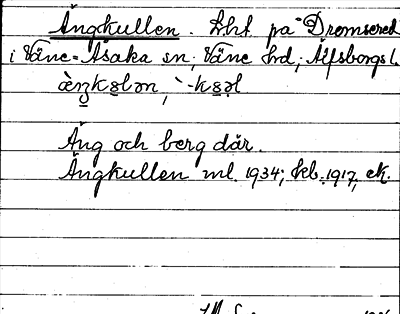 Ängkullen. Lht på Dromsered
i Väne-Åsaka sn, Väne hd, Älfsborgs l.
Äng och berg där.
Ängkullen ml. 1934; hkb. 1917, ek.